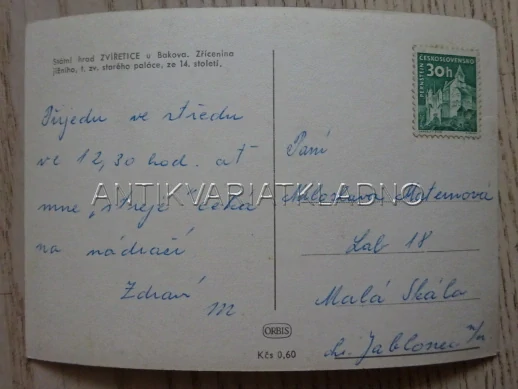 Státní hrad ZVÍŘETICE u Bakova. Zřícenina
jižního, t. zv. starého paláce, ze 14. století.
Přijedu ve středu
ve 12,30 hod. ať
mne „strejc" čeká
na nádraží
Zdraví
M
ČESKOSLOVENSKO
30h
PERNŠTEJN
Paní
Miloslava Maternová
Lab 18
Malá Skála
Jablonec n/N.
ORBIS
Kčs 0,60
ANTIKVARIATKLADNO